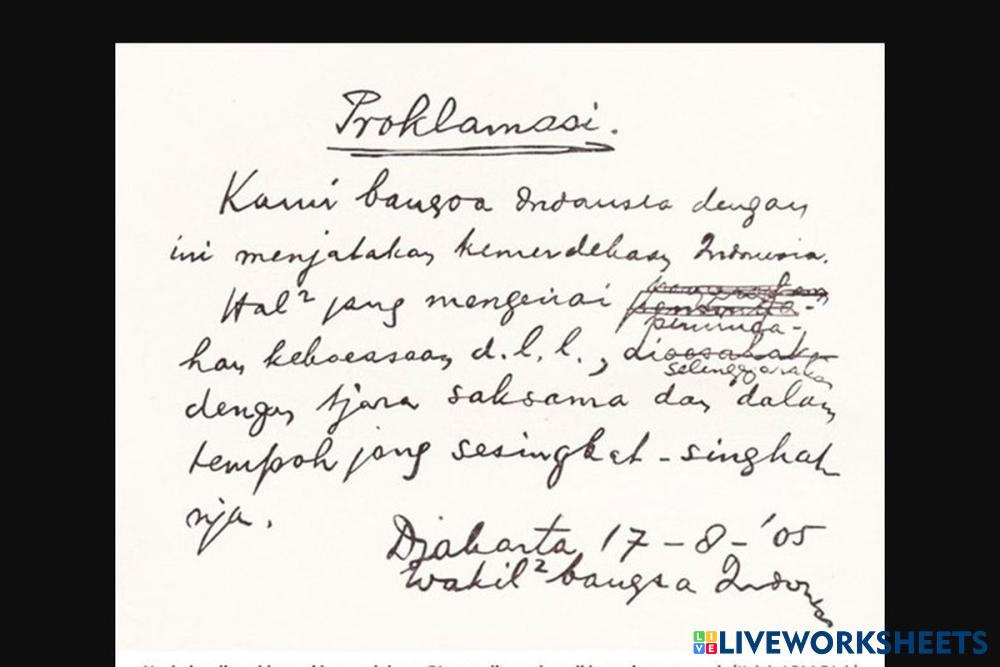 Proklamasi.
Kami bangsa Indonesia dengan
ini menjatakan kemerdekaan Indonesia.
Hal² jang mengenai
peminda-
han keboeasaan d.l.l., dioesahakan
selenggarakan
dengan tjara saksama dan dalam
tempoh jang sesingkat-singkat
nja.
Djakarta 17-8-'05
Wakil² bangsa Indonesia
LIVEWORKSHEETS